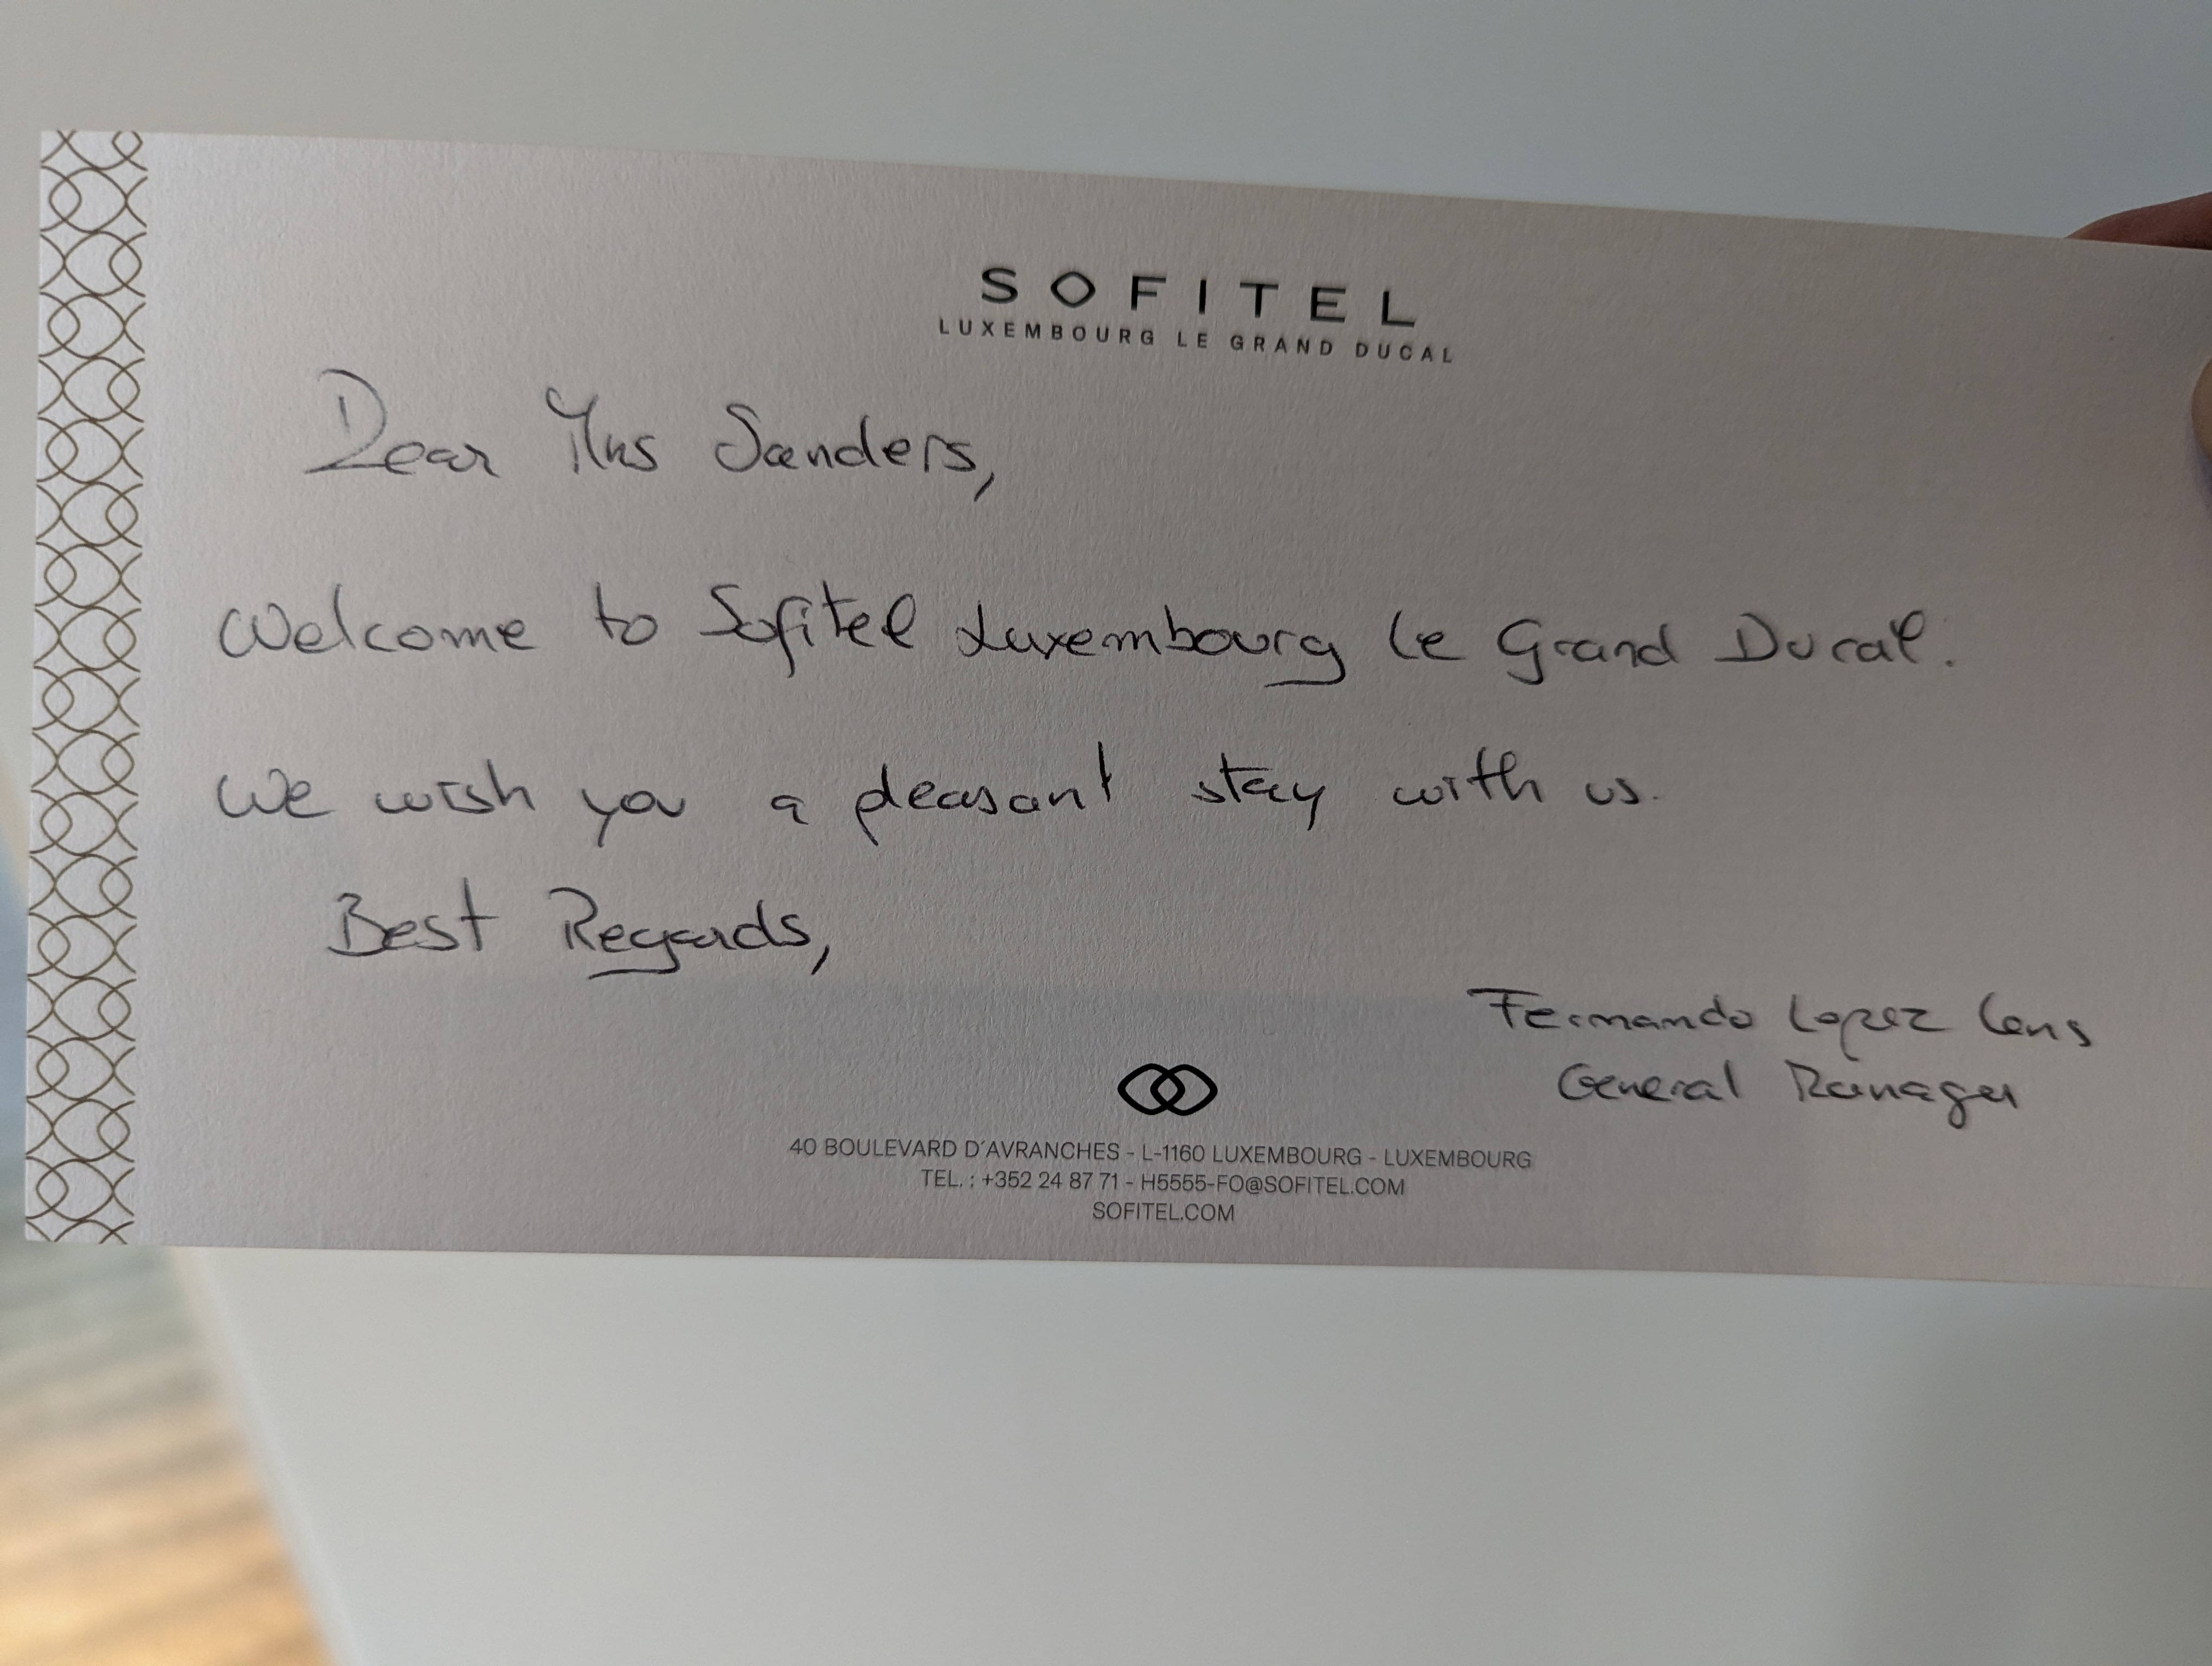 SOFITEL
LUXEMBOURG LE GRAND DUCAL
Dear Mrs Sanders,
Welcome to Sofitel Luxembourg le Grand Ducal.
We wish you a pleasant stay with us.
Best Regards,
Fernando Lopez Lens
General Manager
40 BOULEVARD D'AVRANCHES - L-1160 LUXEMBOURG - LUXEMBOURG
TEL. : +352 24 87 71 - H5555-FO@SOFITEL.COM
SOFITEL.COM